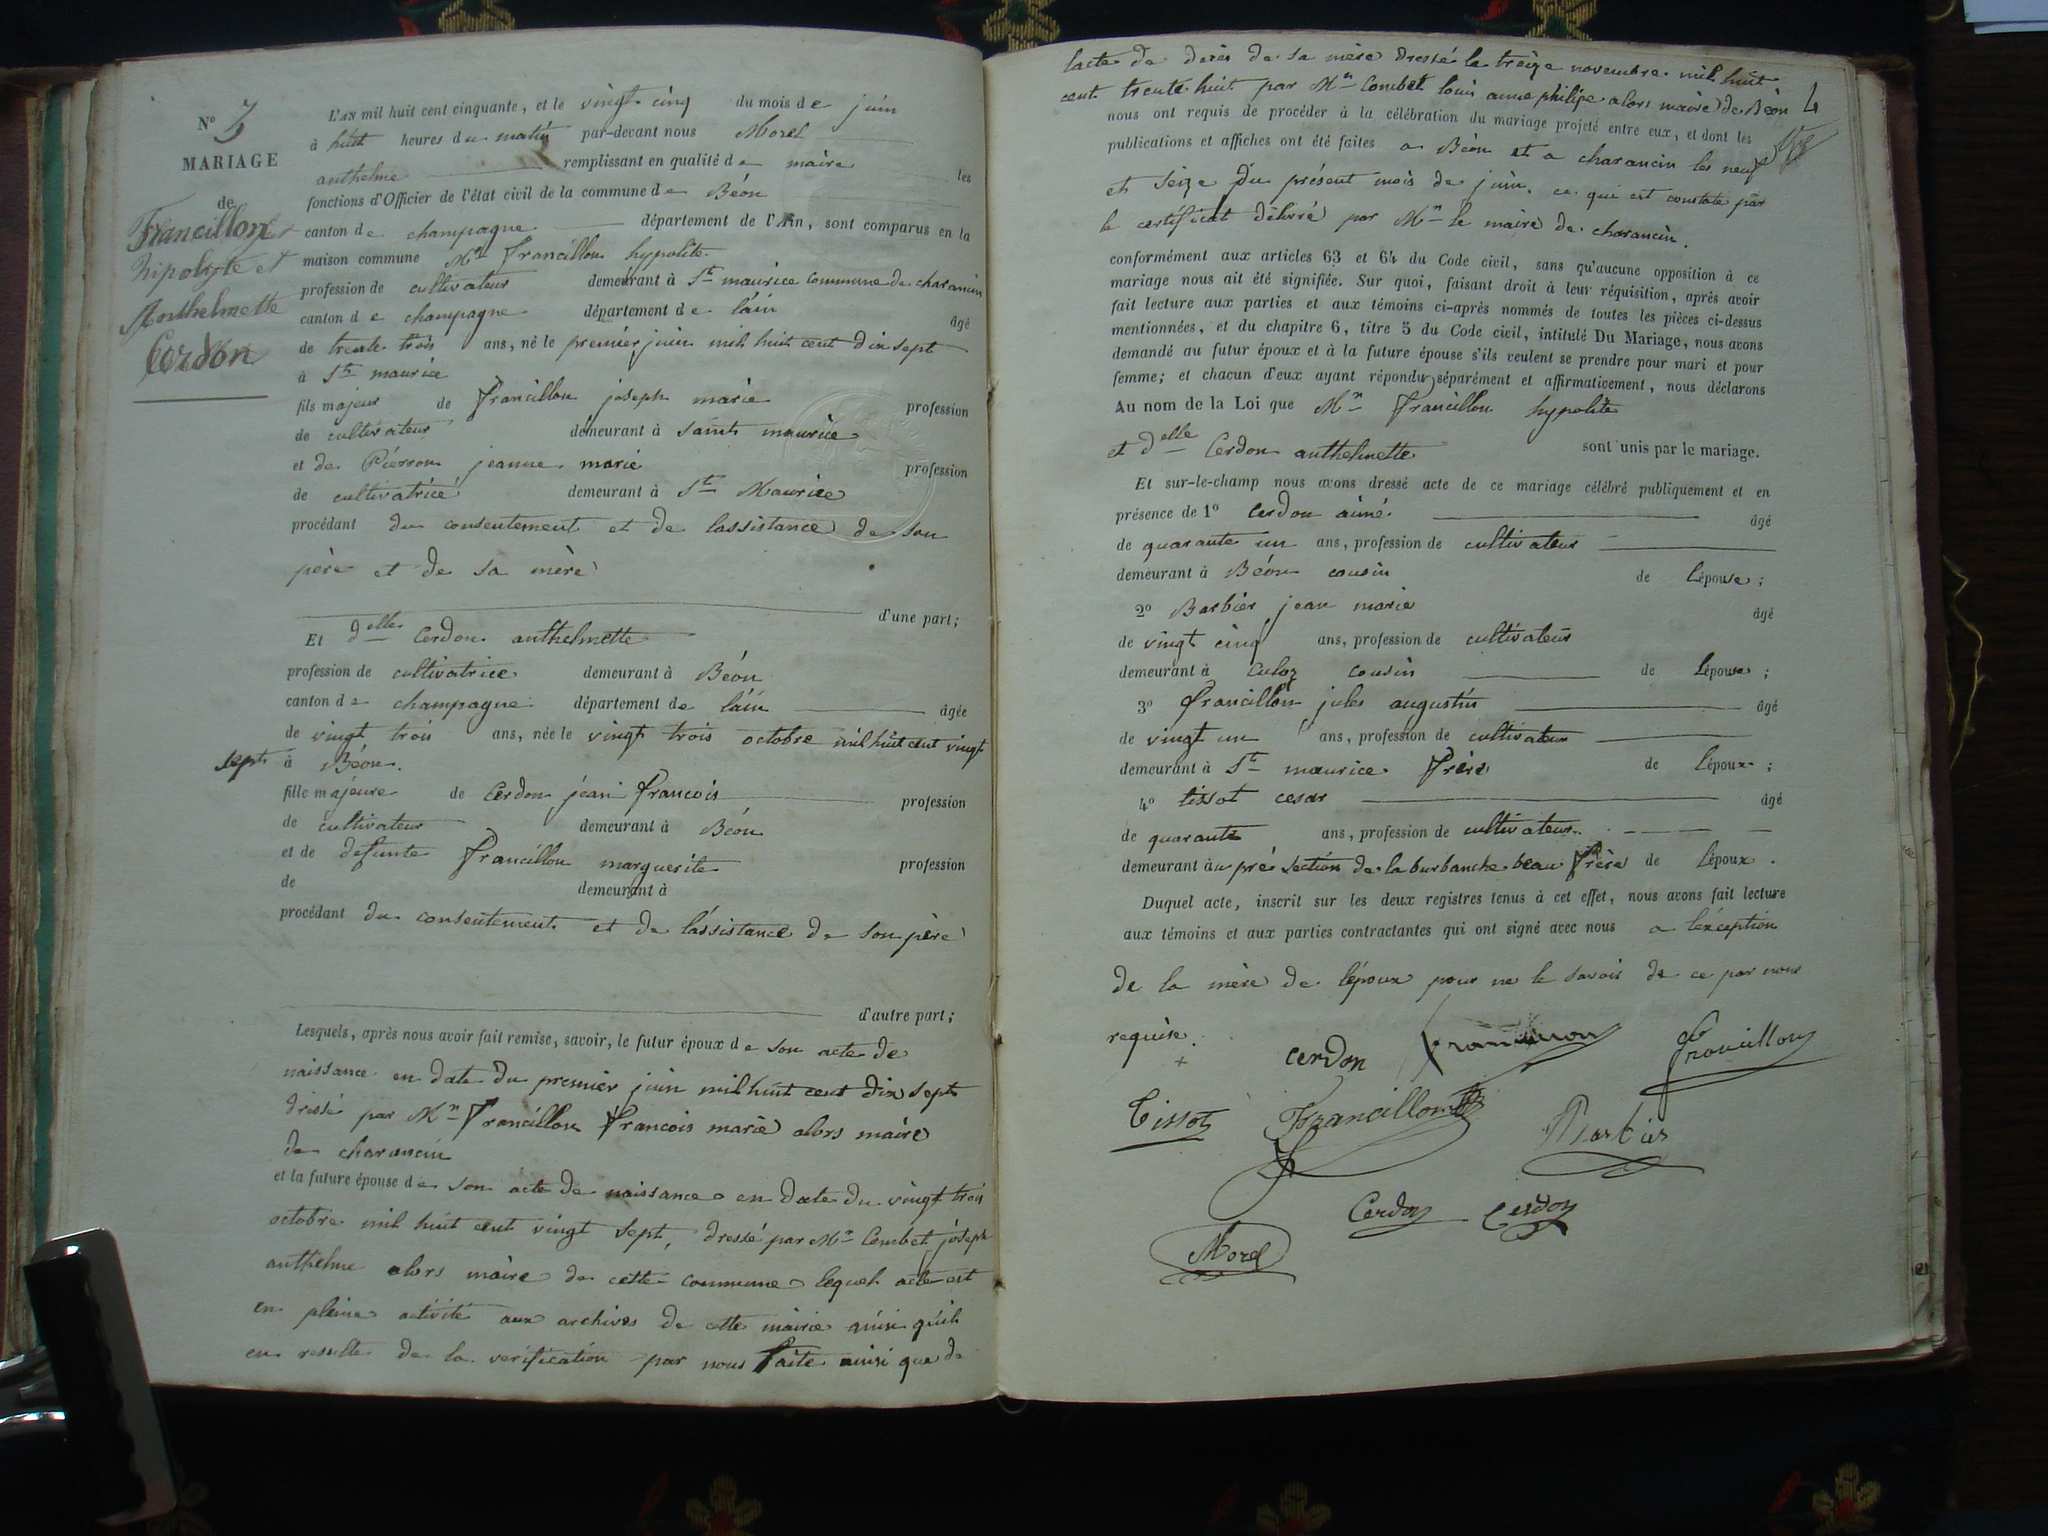 N° 3
MARIAGE
de
Francillon
hipolyte et
Anthelmette
Cerdon
L'AN mil huit cent cinquante, et le vingt cinq du mois de juin
à huit heures du matin par-devant nous Morel
anthelme remplissant en qualité de maire les
fonctions d'Officier de l'état civil de la commune de Béon
canton de champagne département de l'Ain, sont comparus en la
maison commune Mr francillon hypolite
profession de cultivateur demeurant à St maurice commune de charancin
canton de champagne département de láin âgé
de trente trois ans, né le premier juin mil huit cent dix sept
à St maurice
fils majeur de francillon joseph marie profession
de cultivateur demeurant à saint maurice
et de Pierron jeanne marie profession
de cultivatrice demeurant à St Maurice
procédant du consentement et de lassistance de son
père et de sa mère
d'une part;
Et delle Cerdon anthelmette
profession de cultivatrice demeurant à Béon
canton de champagne département de láin âgée
de vingt trois ans, née le vingt trois octobre mil huit cent vingt
sept à Béon.
fille majeure de Cerdon jean francois profession
de cultivateur demeurant à Béon
et de defunte francillon marguerite profession
de demeurant à
procédant du consentement et de lássistance de son père
d'autre part;
Lesquels, après nous avoir fait remise, savoir, le futur époux de son acte de
naissance en date du premier juin mil huit cent dix sept
dressé par Mr Francillon francois marie alors maire
de charancin
et la future épouse de son acte de naissance en date du vingt trois
octobre mil huit cent vingt sept, dressé par Mr Combet joseph
anthelme alors maire de cette commune lequel acte est
en pleine activité aux archives de cette mairie ainsi quil
en resulte de la verification par nous faite ainsi que de
lacte de décès de sa mère dressé le treize novembre mil huit
cent trente huit par Mr Combet louis anne philipe alors maire de Béon 4
nous ont requis de procéder à la célébration du mariage projeté entre eux, et dont les
publications et affiches ont été faites a Béon et a charancin les neuf
et seize du présent mois de juin. ce qui est constaté par
le certificat délivré par Mr le maire de charancin.
conformément aux articles 63 et 64 du Code civil, sans qu'aucune opposition à ce
mariage nous ait été signifiée. Sur quoi, faisant droit à leur réquisition, après avoir
fait lecture aux parties et aux témoins ci-après nommés de toutes les pièces ci-dessus
mentionnées, et du chapitre 6, titre 5 du Code civil, intitulé Du Mariage, nous avons
demandé au futur époux et à la future épouse s'ils veulent se prendre pour mari et pour
femme; et chacun d'eux ayant répondu séparément et affirmativement, nous déclarons
Au nom de la Loi que Mr francillon hypolite
et delle Cerdon anthelmette sont unis par le mariage.
Et sur-le-champ nous avons dressé acte de ce mariage célébré publiquement et en
présence de 1° Cerdon aimé âgé
de quarante un ans, profession de cultivateur
demeurant à Béon cousin de lépouse;
2° Barbier jean marie âgé
de vingt cinq ans, profession de cultivateur
demeurant à culoz cousin de lépouse;
3° francillon jules augustin âgé
de vingt un ans, profession de cultivateur
demeurant à St maurice frère de lépoux;
4° tissot cesar âgé
de quarante ans, profession de cultivateur
demeurant à u pré section de la burbanche beau frère de lépoux.
Duquel acte, inscrit sur les deux registres tenus à cet effet, nous avons fait lecture
aux témoins et aux parties contractantes qui ont signé avec nous a léxception
de la mère de lépoux pour ne le savoir de ce par nous
requise.
cerdon francillon francillon
Tissot Francillon Barbier
Cerdon Cerdon
Morel